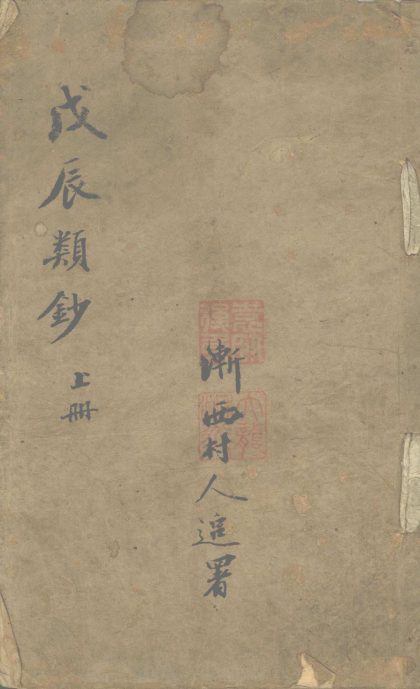 戊辰類鈔 上冊
漸西村人署